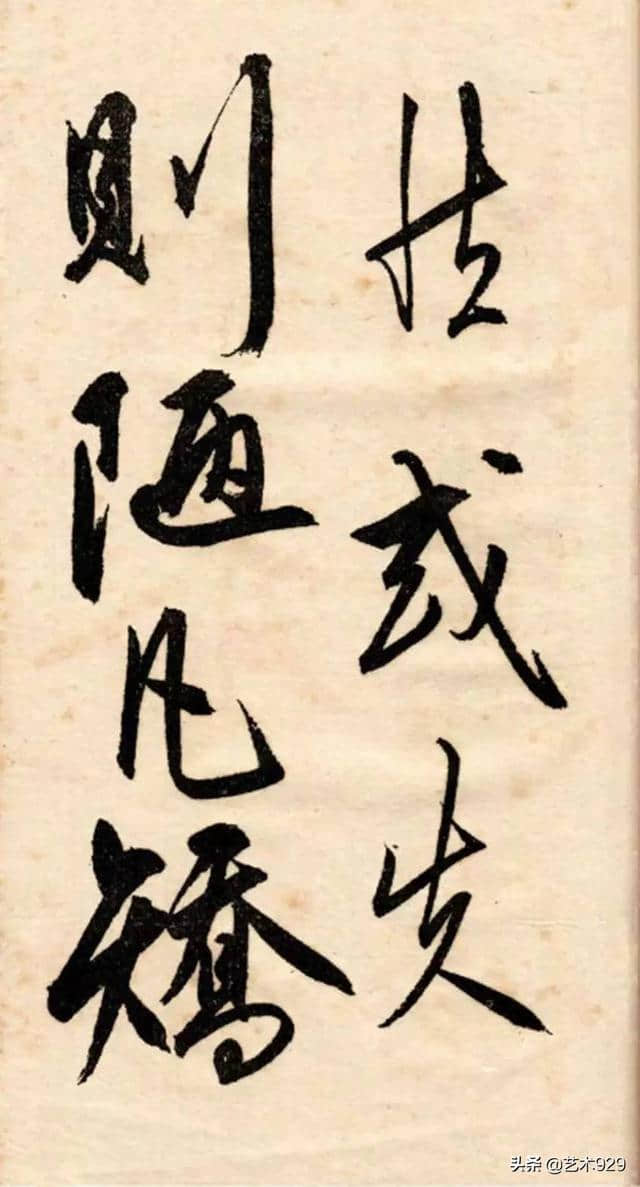 怯或失
則陋凡矯
头条 @艺术929